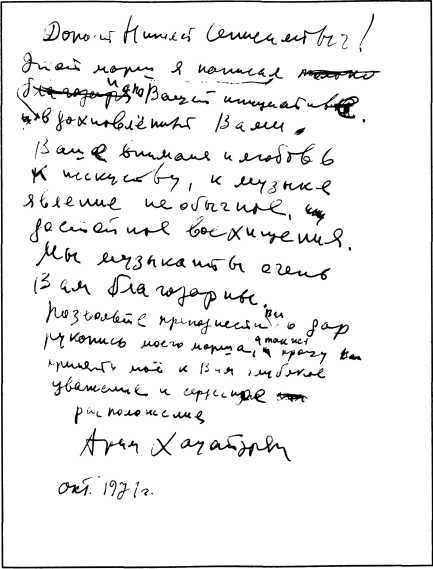 Дорогой Семенович!
Этот марш я написал только
благодаря по Вашей инициативе
вдохновлённый Вами.
Ваше внимание и любовь
к искусству, к музыке
явление необычное,
достойное восхищения.
Мы музыканты очень
Вам благодарны.
Позвольте преподнести Вам в дар
рукопись моего марша, а также прошу Вас
принять моё к Вам глубокое
уважение и сердечное
расположение
Арам Хачатурян
окт. 1971г.